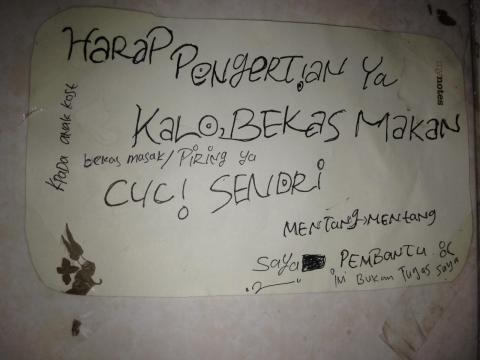 notes
Kpada anak kost
HARAP PENGERTIAN Ya
KALO, BEKAS MAKAN
bekas masak/PIRING ya
CUCI SENDRI
MENTANG-MENTANG
saya PEMBANTU
ini Bukan Tugas saya